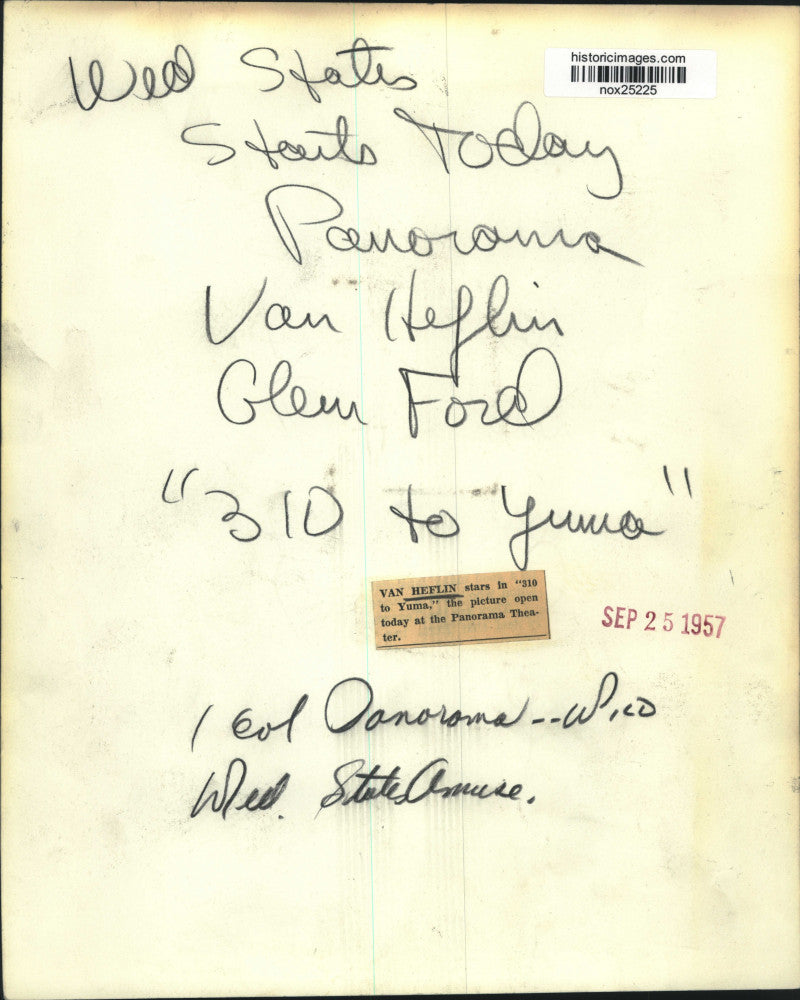 historicimages.com
nox25225
Wed States
Starts Today
Panorama
Van Heflin
Glenn Ford
"310 to Yuma"
VAN HEFLIN stars in "310
to Yuma," the picture open
today at the Panorama Thea-
ter.
SEP 25 1957
1 Col Panorama --
Wed. States Amuse.